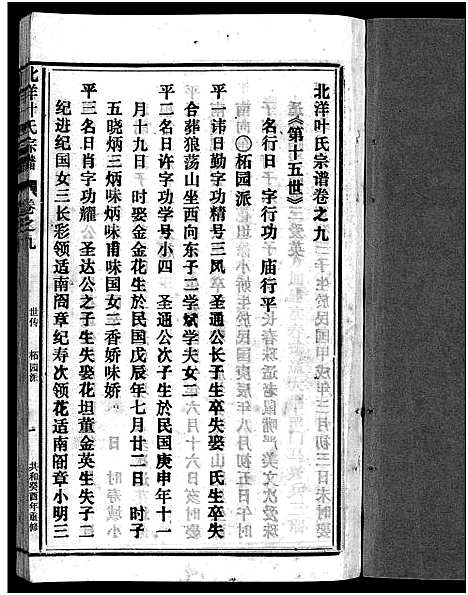 北洋叶氏宗谱卷之九
《第十五世》
名行日　字行功　庙行平
〇柘园派
平一讳日勤字功精号三凤　圣通公长子生卒失娶山氏生卒失
合葬狼荡山坐西向东子二学斌学夫女二
平二名日许字功学号小四　圣通公次子生於民国庚申年十一
月十九日　时娶金金花生於民国戊辰年七月廿二日　时子
五晓炳三炳味炳甫味国女三香娇味娇
平三名日肖字功耀　圣达公之子生失娶花坦董金英生失子三
纪进纪国女三长彩领适南阁章纪寿次领花适南阁章小明三
北洋叶氏宗谱
卷之九
世传　柘园派
一
共和癸酉年重修